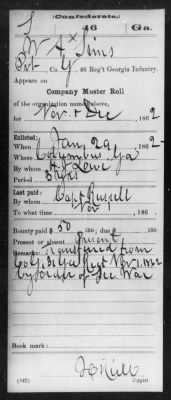 Confederate.
S 46 Ga.
W A X Sims
Pvt, Co. G, 46 Reg't Georgia Infantry.
Appears on
Company Muster Roll
of the organization named above,
for Nov & Dec, 1862
Enlisted:
When Jan 29, 1862
Where Columbus, Ga
By whom
Period 3 yrs
Last paid:
By whom Capt Russell
To what time Nov 1, 186 .
Bounty paid $ 50 100; due $ 100
Present or absent Present
Remarks: Transferred from
Co Reg't Nov 1, 1862
by order of Sec War
Book mark:
(642) Copyist.